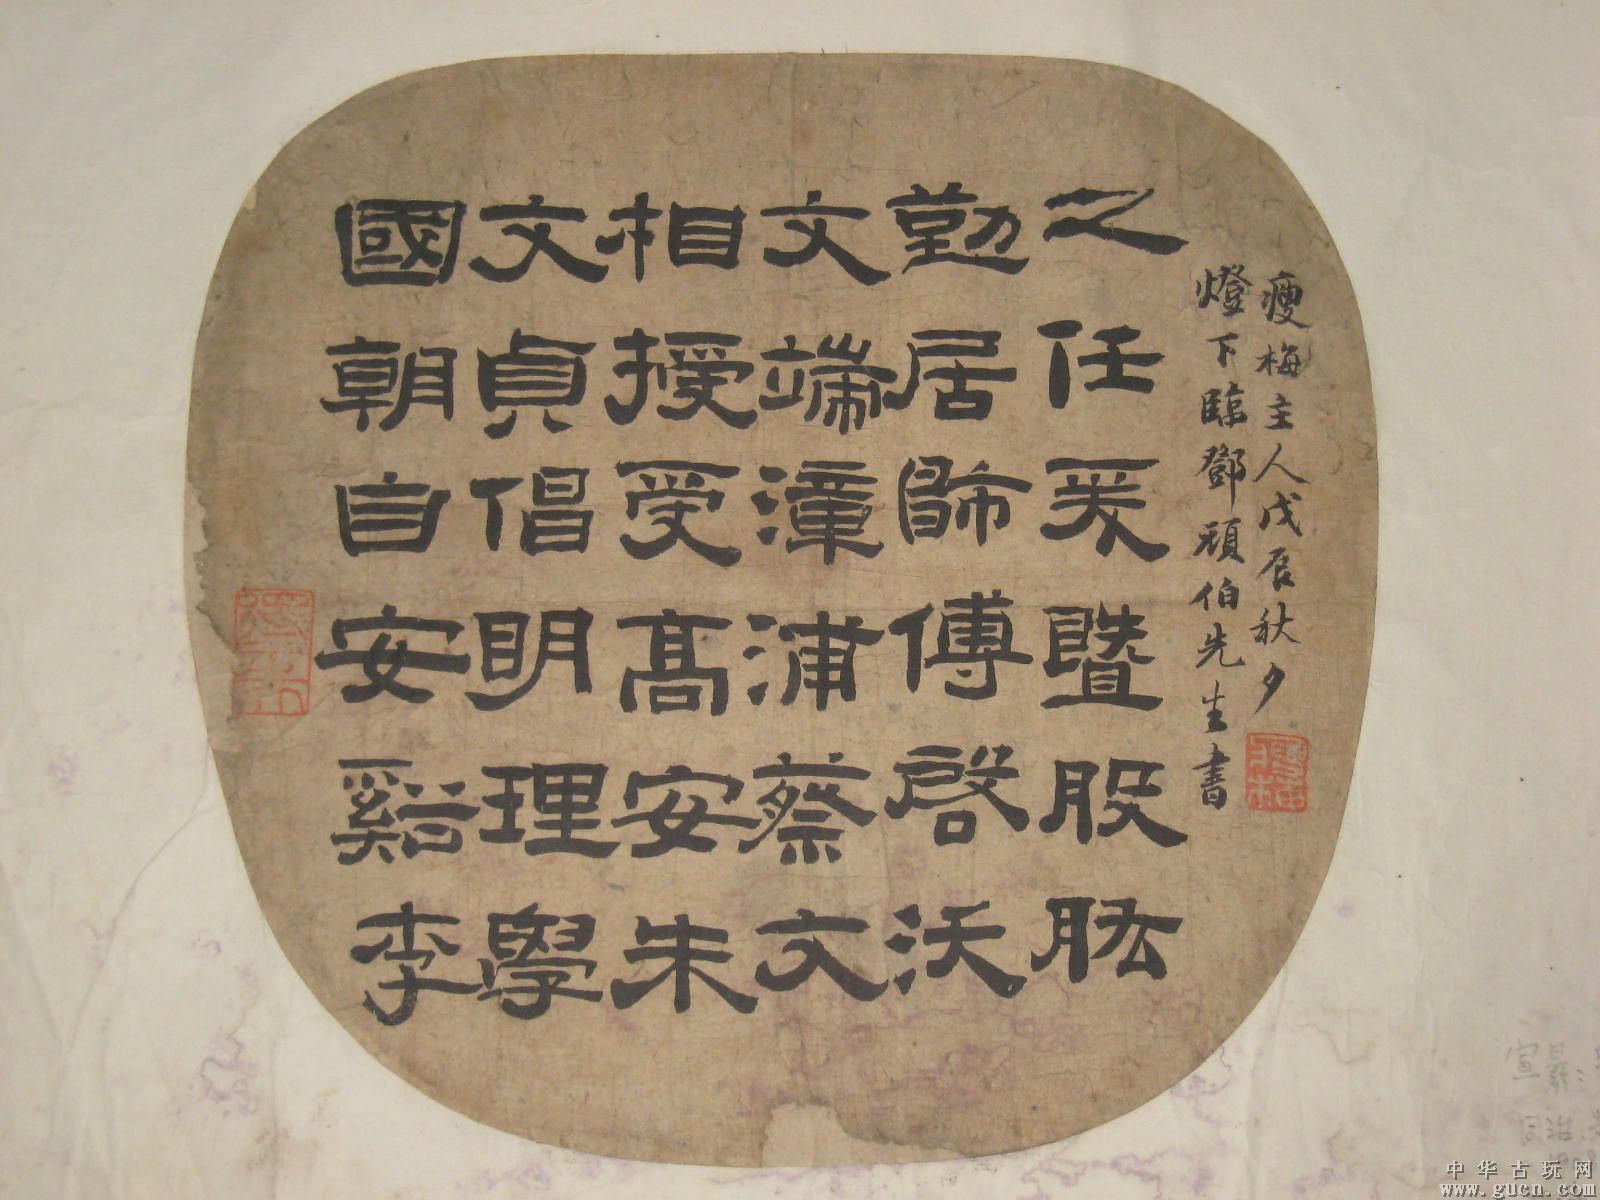 國朝自安谿李
文貞倡明理學
相授受高安朱
文端漳浦蔡文
勤居師傅啓沃
之任爰暨股肱
瘦梅主人戊辰秋夕
燈下臨鄧頑伯先生書
中华古玩网
www.gucn.com